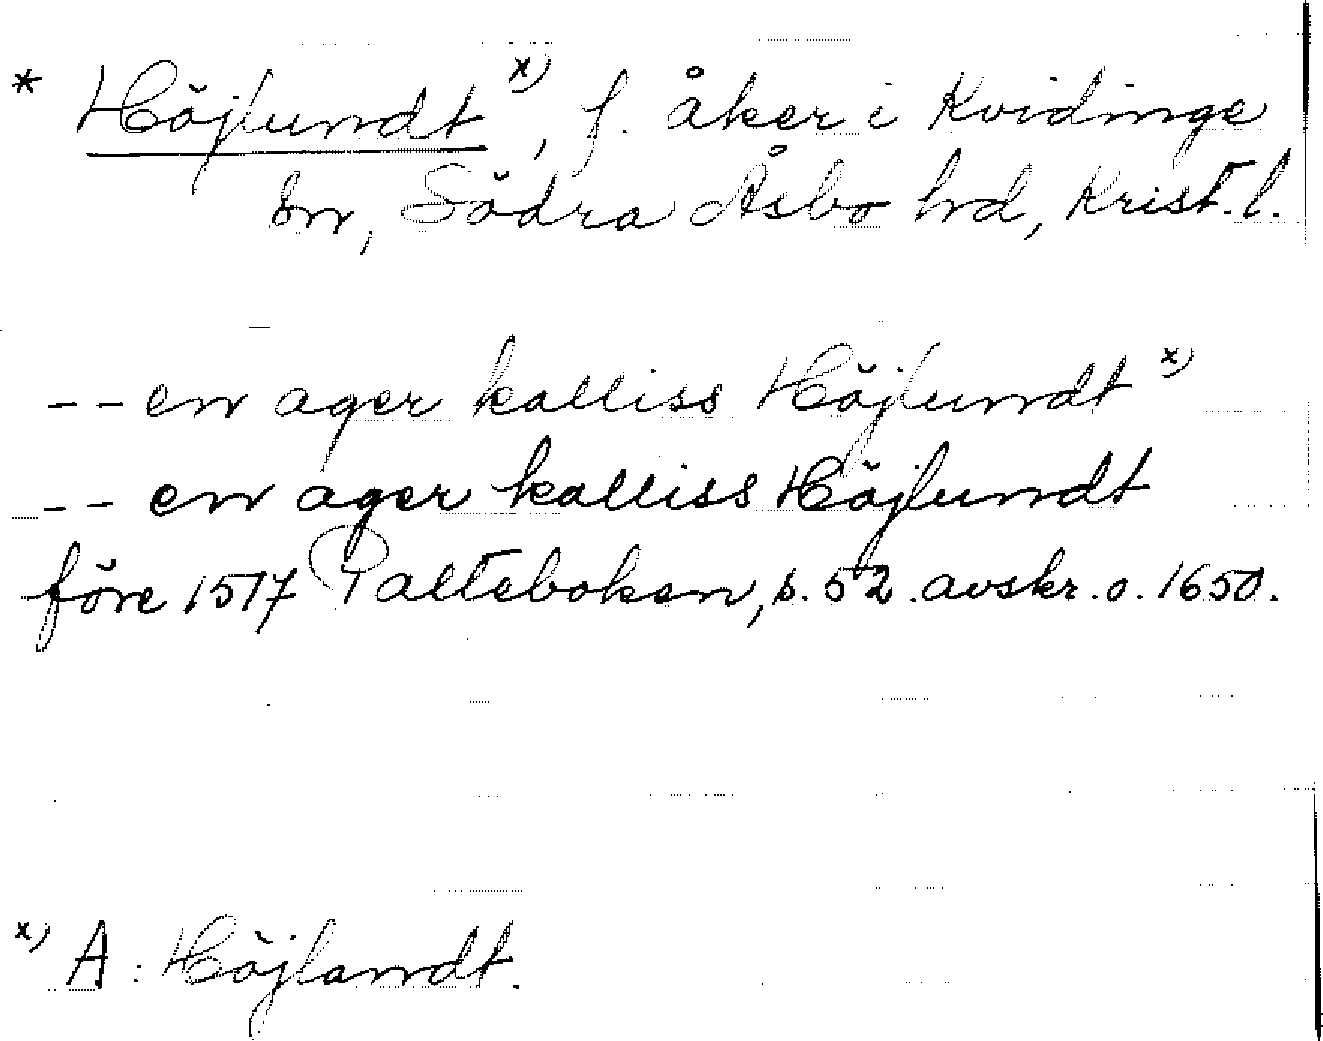 * Höjlundt x), f. åker i Kvidinge
sn, Södra Åsbo hd, Krist. l.
-- en ager kalliss Höjlundt x)
-- en ager kalliss Höjlundt
före 1517 Palteboken, s. 52. avskr. o. 1650.
x) A: Höjlandt.